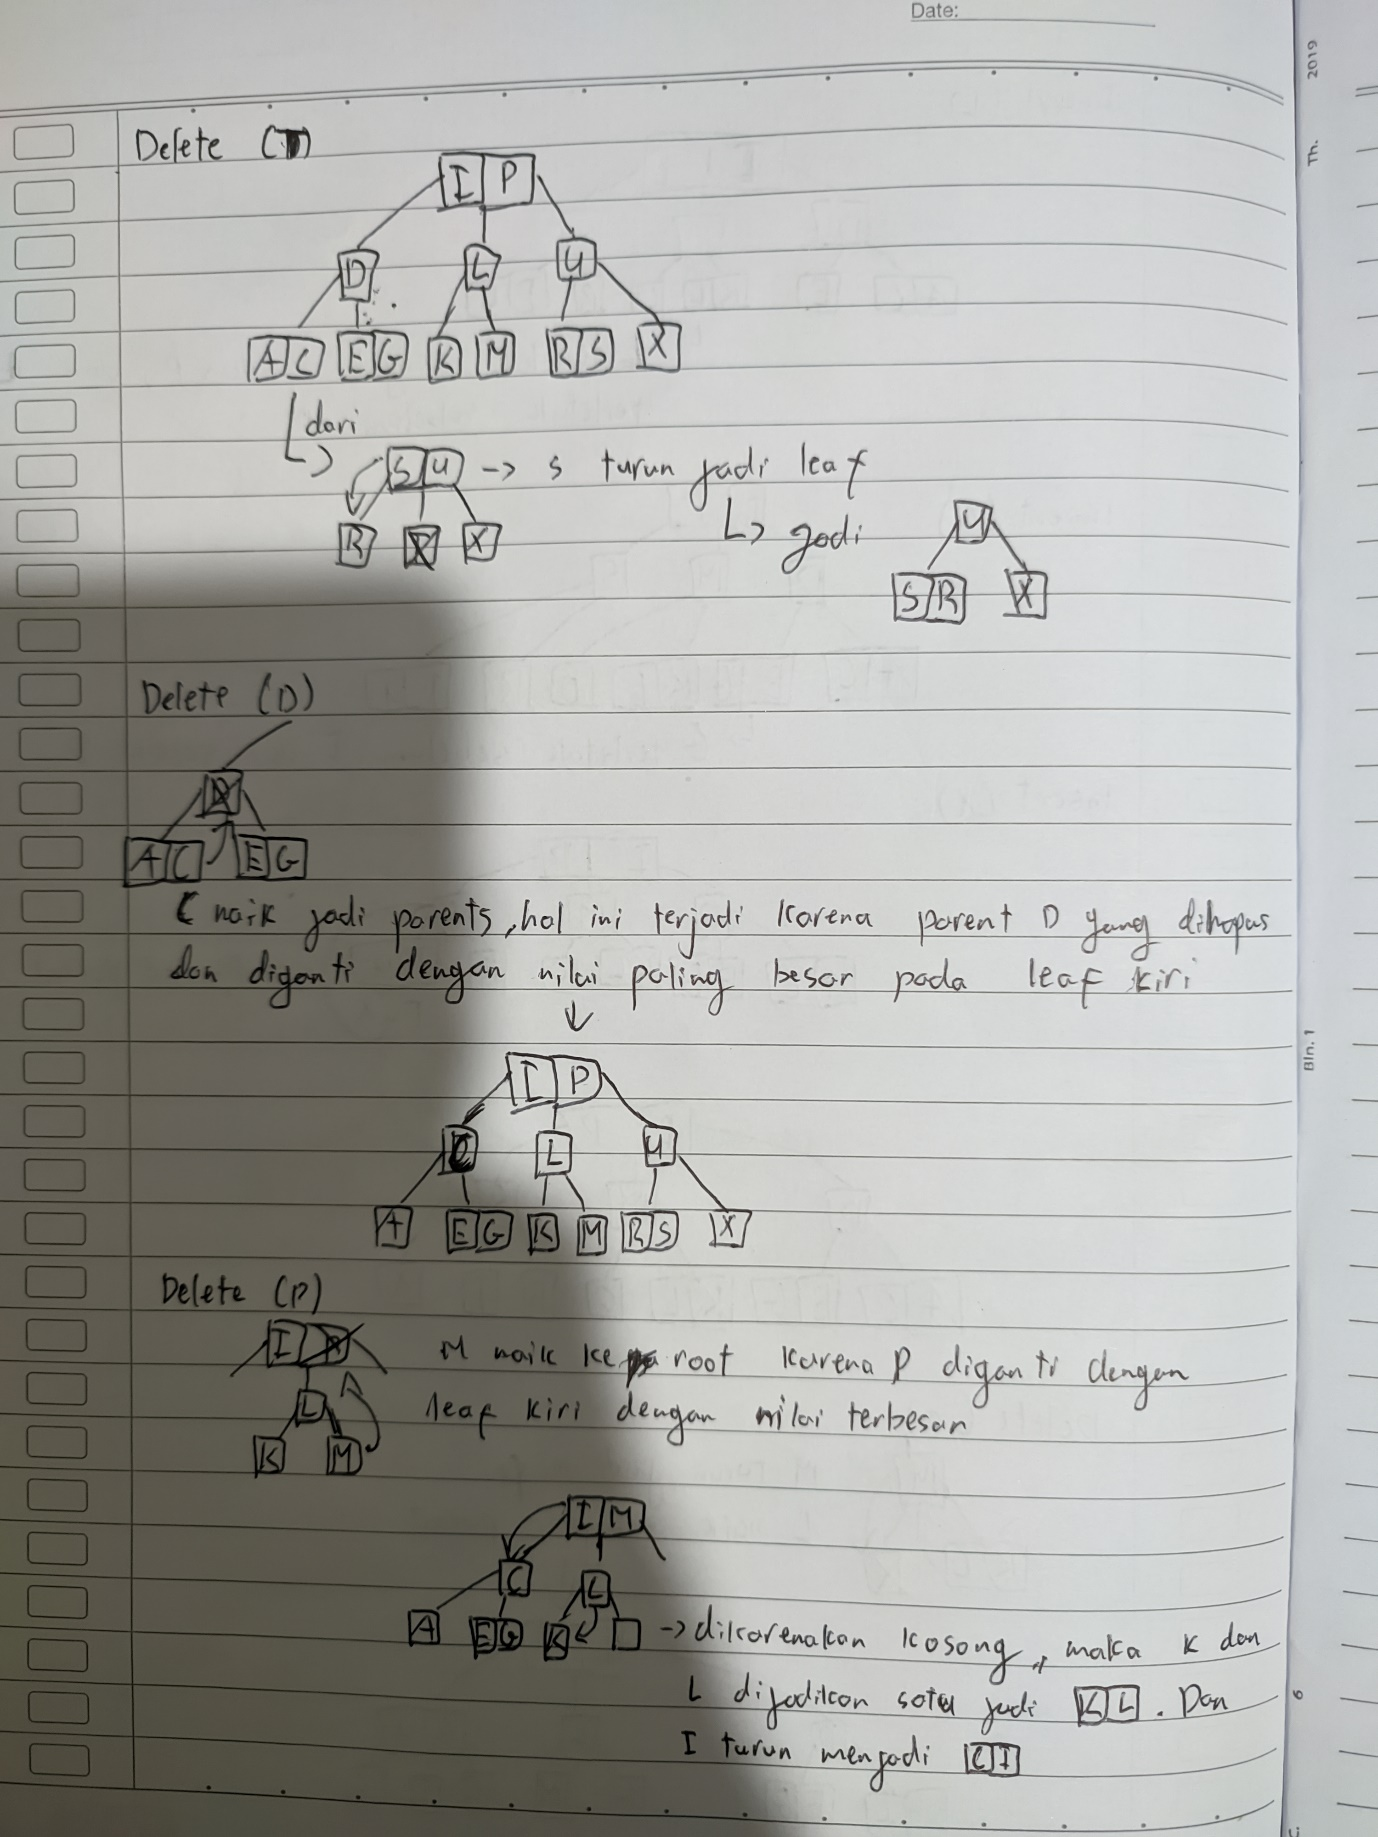 Date:
2019
Th.
Delete (T)
I P
D L U
A C E G K M R S X
dari
S U -> s turun jadi leaf
R X
jadi U
S R X
Delete (D)
D
A C E G
C naik jadi parents, hal ini terjadi karena parent D yang dihapus
dan diganti dengan nilai paling besar pada leaf kiri
Bln. 1
I P
C L U
A E G K M R S X
Delete (P)
I P
L
K M
M naik ke root karena P diganti dengan
leaf kiri dengan nilai terbesar
I M
C L
A E G K -> dikarenakan kosong, maka K dan
L dijadikan satu jadi K L . Dan
I turun menjadi C I
6